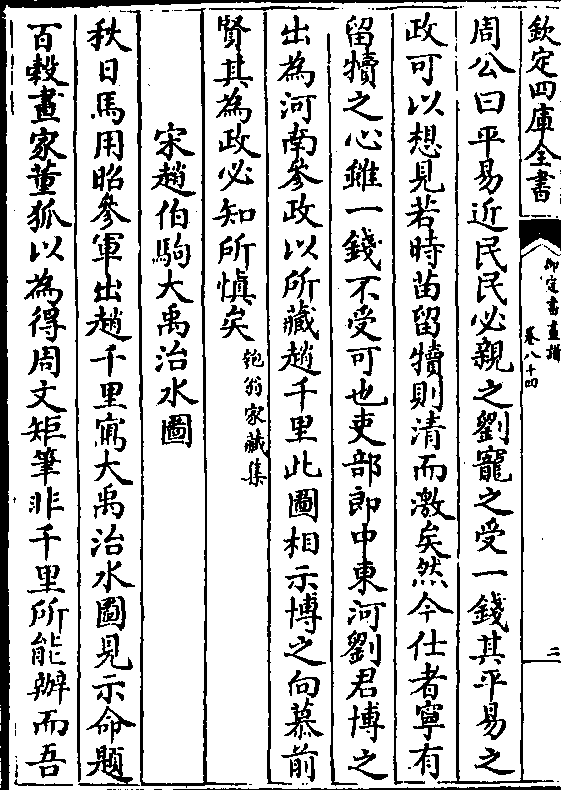 欽定四庫全書
御定書畫譜
卷八十四
三
周公曰平易近民民必親之劉寵之受一錢其平易之
政可以想見若時苗留犢則清而激矣然今仕者寧有
留犢之心雖一錢不受可也吏部郎中東河劉君博之
出為河南參政以所藏趙千里此圖相示博之向慕前
賢其為政必知所慎矣
匏翁家藏集
宋趙伯駒大禹治水圖
秋日馬用昭參軍出趙千里寫大禹治水圖見示命題
百榖畫家董狐以為得周文矩筆非千里所能辦而吾